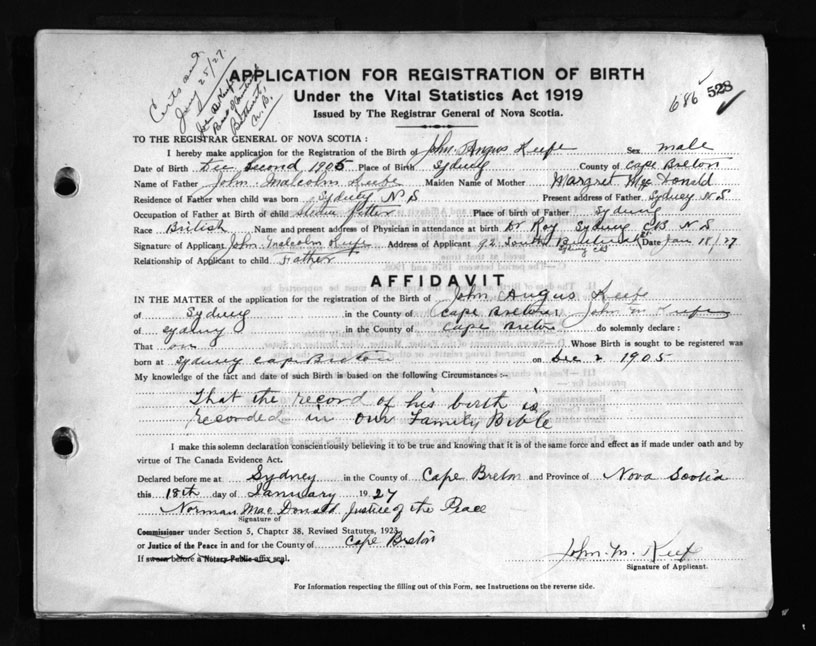 Certs and
Jany 25/27.
N.B.
686
528
APPLICATION FOR REGISTRATION OF BIRTH
Under the Vital Statistics Act 1919
Issued by The Registrar General of Nova Scotia.
TO THE REGISTRAR GENERAL OF NOVA SCOTIA :
I hereby make application for the Registration of the Birth of John Angus Keefe Sex male
Date of Birth Dec second 1905 Place of Birth Sydney County of Cape Breton
Name of Father John Malcolm Keefe Maiden Name of Mother Margret Mac Donald
Residence of Father when child was born Sydney N S Present address of Father Sydney N.S
Occupation of Father at Birth of child fitter Place of birth of Father Sydney
Race British Name and present address of Physician in attendance at birth Dr Roy Sydney CB N S
Signature of Applicant John Malcolm Keefe Address of Applicant 92 South Sydney CB Date Jan 18/27
Relationship of Applicant to child Father
AFFIDAVIT
IN THE MATTER of the application for the registration of the Birth of John Angus Keefe
of Sydney in the County of Cape Breton, John M Keefe
of Sydney in the County of Cape Breton do solemnly declare :
That Whose Birth is sought to be registered was
born at Sydney Cape Breton on Dec 2 1905
My knowledge of the fact and date of such Birth is based on the following Circumstances :-
That the record of his birth is
recorded in our Family Bible
I make this solemn declaration conscientiously believing it to be true and knowing that it is of the same force and effect as if made under oath and by
virtue of The Canada Evidence Act.
Declared before me at Sydney in the County of Cape Breton and Province of Nova Scotia
this 18th day of January 1927
Norman Mac Donald Justice of the Peace
Signature of
Commissioner under Section 5, Chapter 38, Revised Statutes, 1923
or Justice of the Peace in and for the County of Cape Breton
If sworn before a Notary Public affix seal.
John. M. Keefe
Signature of Applicant.
For Information respecting the filling out of this Form, see Instructions on the reverse side.